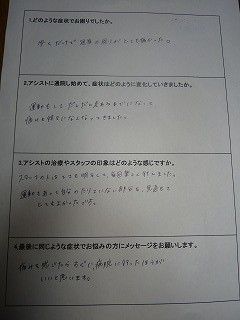 1.どのような症状でお困りでしたか。
歩くだけで 足首の周りが とても痛かった。
2.アシストに通院し始めて、症状はどのように変化していきましたか。
運動をして だんだん 走れるように なって
痛みも ほとんどなくなってきました。
3.アシストの治療やスタッフの印象はどのような感じですか。
スタッフの人は とても 明るくて、毎回楽しく行けました。
運動をおしえて 自分の たりていない部分も 見直せて
とてもよかったです。
4.最後に同じような症状でお悩みの方にメッセージをお願いします。
痛みを感じたら すぐに 病院に 行ったほうが
いいと思います。